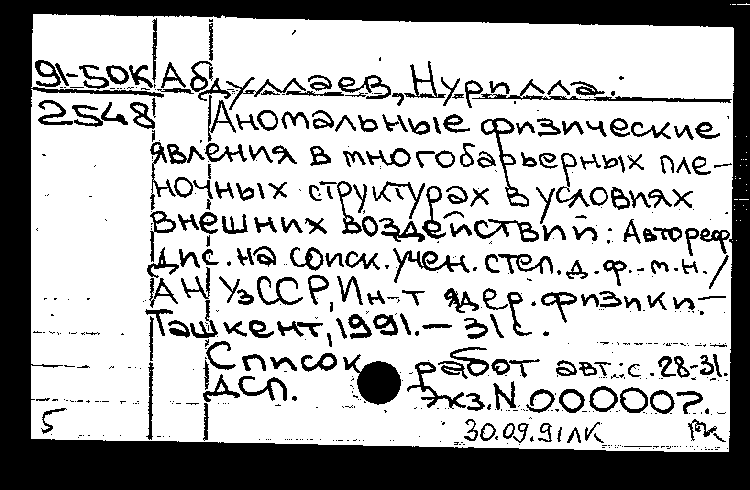 91-50К Абдуллаев, Нурилла.
2548 Аномальные физические
явления в многобарьерных пле-
ночных структурах в условиях
внешних воздействий: Автореф.
дис. на соиск. учен. степ. д. ф.-м.н. /
АН УзССР, Ин-т ядер. физики. -
Ташкент, 1991. - 31 с.
Список работ авт.: с. 28-31.
ДСП. Экз. N 000007.
5 30.09.91 ЛК РК